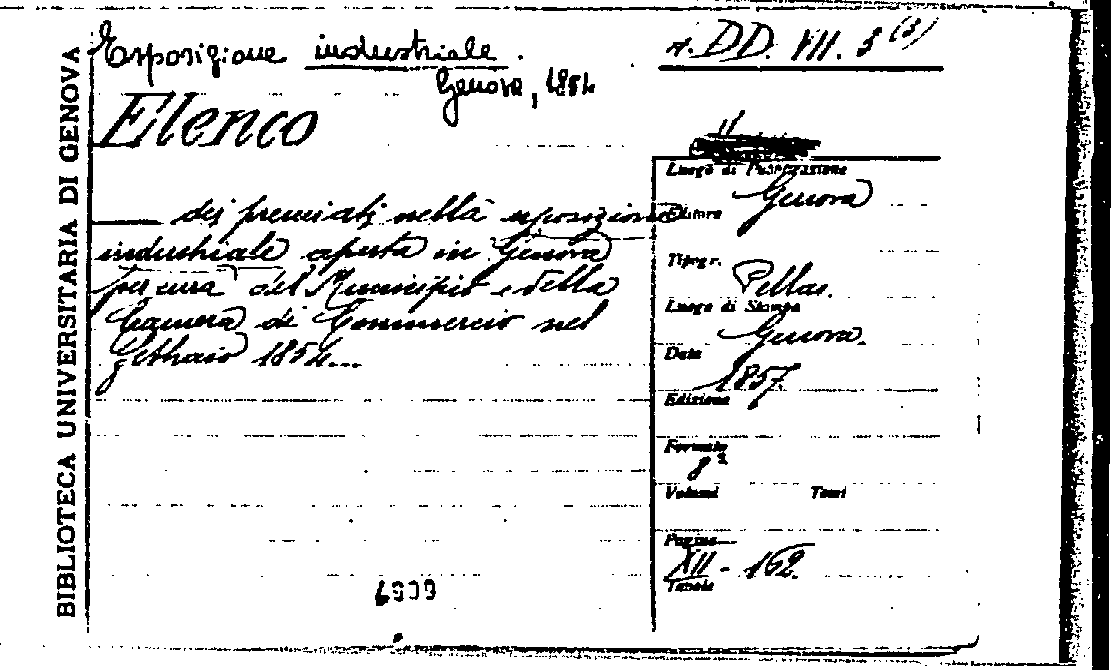 BIBLIOTECA UNIVERSITARIA DI GENOVA
Esposizione industriale.
Genova, 1854
A. DD. VII. 5 (3)
Elenco
—— dei premiati nella esposizione
industriale aperta in Genova
per cura del Municipio e della
Camera di Commercio nel
Gennaio 1854...
Luogo di Pubblicazione
Genova
Editore
Tipogr.
Pellas.
Luogo di Stampa
Genova.
Data
1857.
Edizione
Formato
8°
Volumi Tomi
Pagine
XII - 162.
Tavole